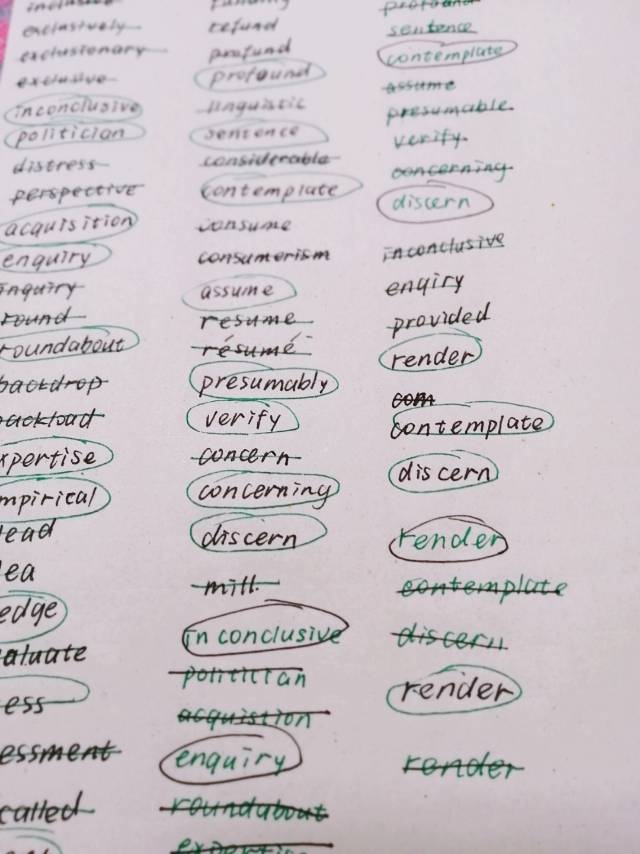 exclusively
exclusionary
exclusive
inconclusive
politician
distress
perspective
acquisition
enquiry
inquiry
round
roundabout
backdrop
ackload
xpertise
mpirical
lead
ea
edge
aluate
ess
essment
called
refund
profund
profound
linguistic
sentence
considerable
contemplate
consume
consumerism
assume
resume
résumé
presumably
verify
concern
concerning
discern
mill.
inconclusive
politician
acquistion
enquiry
roundabout
profound
sentence
contemplate
assume
presumable.
verify.
concerning
discern
inconclusive
enqiry
provided
render
com
contemplate
discern
render
contemplate
discern
render
render